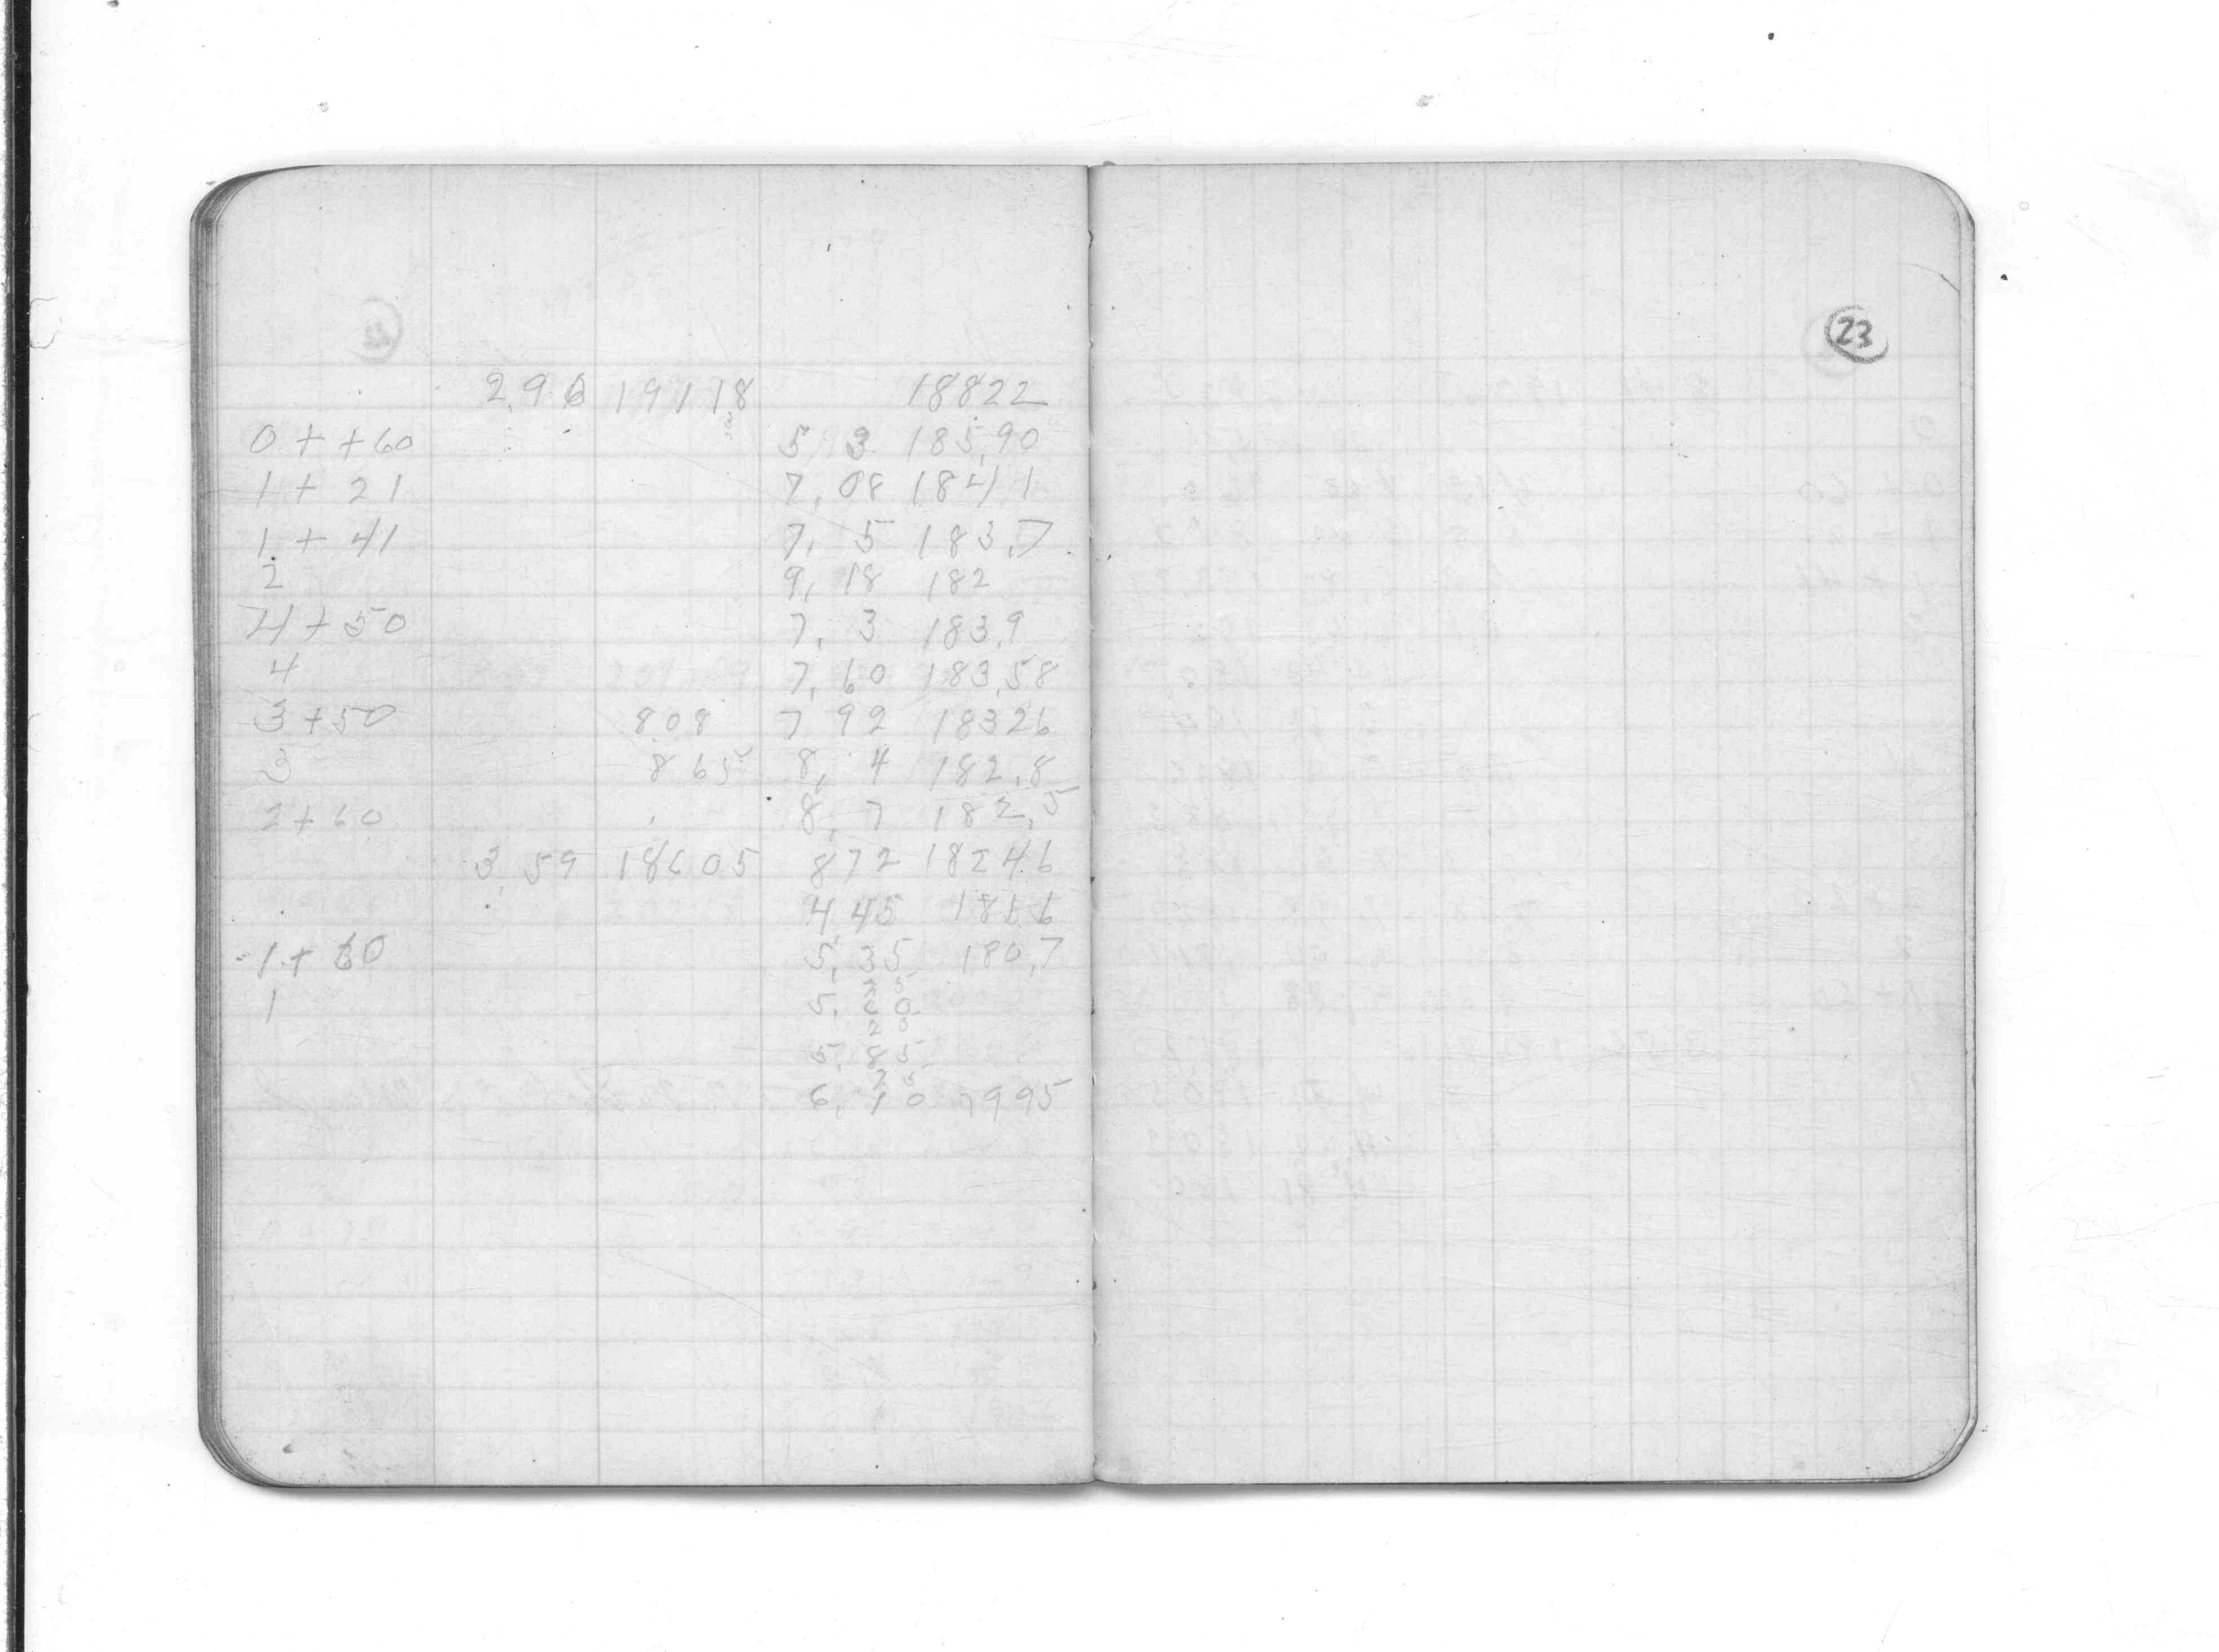 2.96 191 18 188 22
0 + + 60 5 3 185,90
1 + 21 7,08 184 1
1 + 41 7, 5 183,7
2 9, 18 182
4 + 50 7, 3 183,9
4 7, 60 183,58
3 + 50 8 08 7 92 183 26
3 8 65 8, 4 182,8
2 + 60 8, 7 182,5
3 59 186 05 8 72 182 46
4 45
1 + 60 5, 35 180,7
25
1 5. 60
25
5. 85
25
6, 10 7995
23